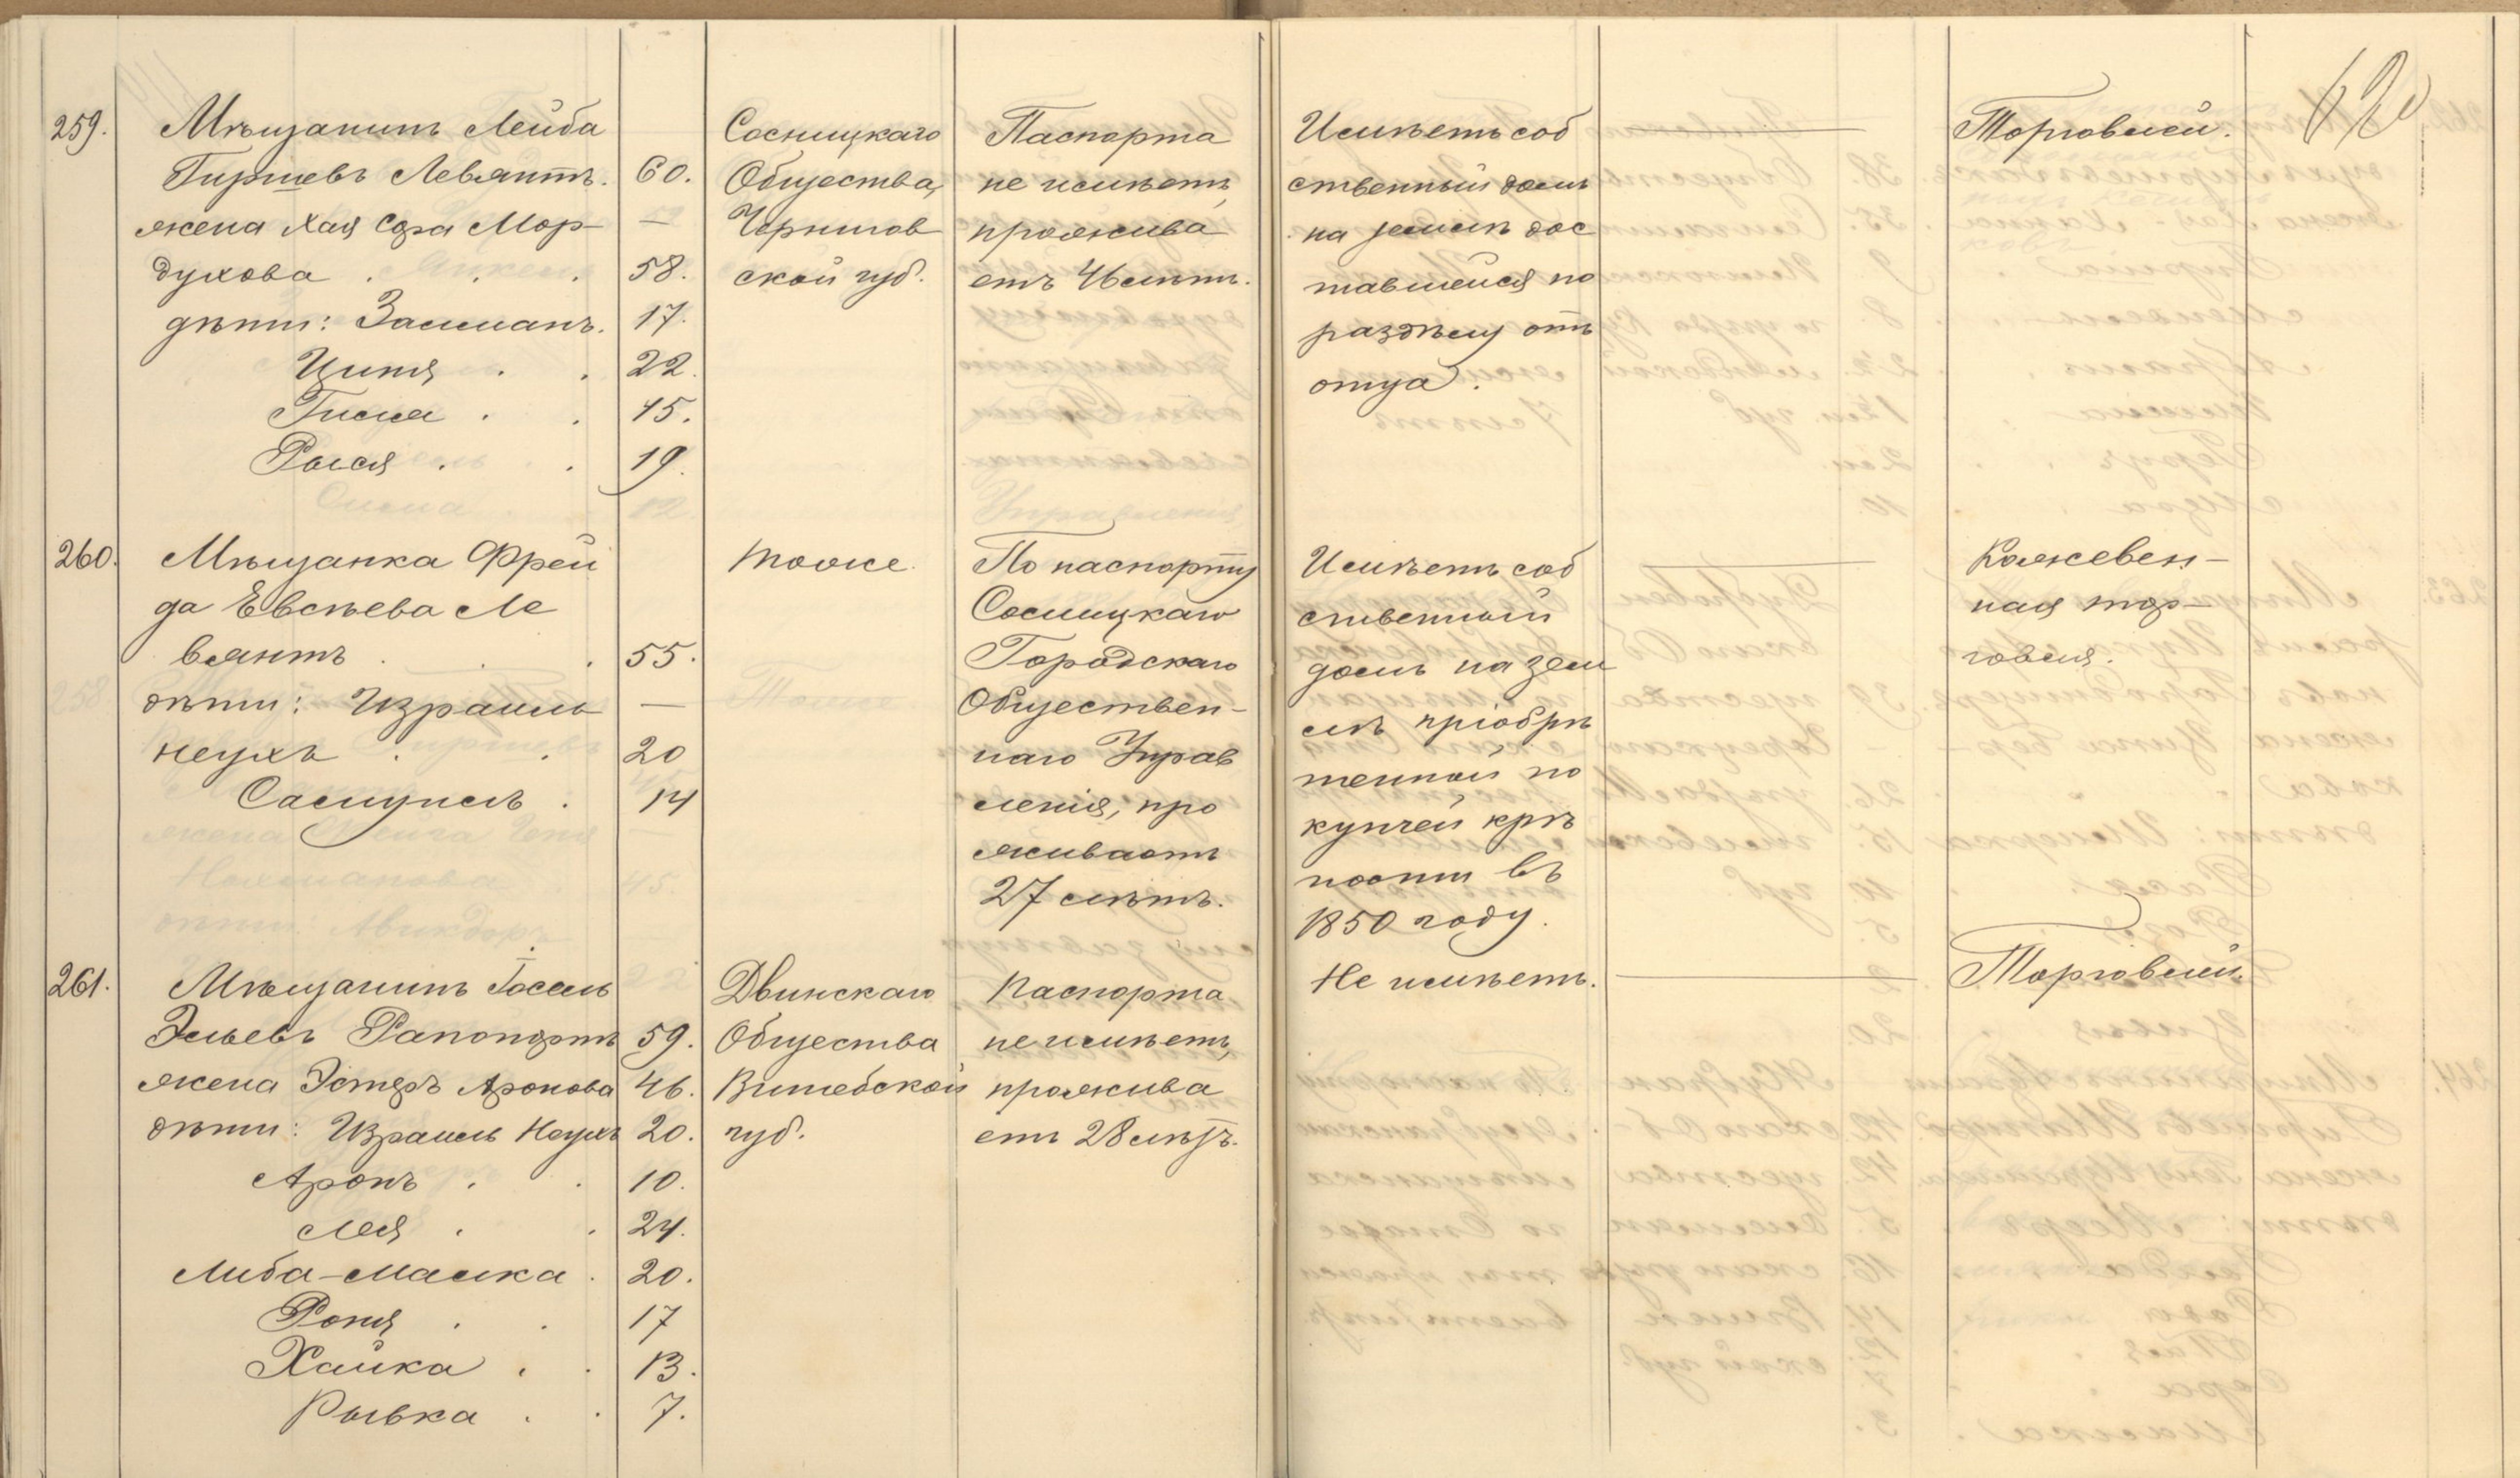 620
259.
Мѣщанинъ Лейба
Гиршевъ Левянтъ. 60.
жена Хая Сора Мор- —
духова . . . 58.
дѣти: Залманъ. 17.
Ципя . . 22.
Гисия . . 15.
Рыся . . 19.
Сосницкаго
Общества,
Чернигов
ской губ.
Паспорта
не имѣетъ,
прожива
етъ 46 лѣтъ.
Имѣетъ соб
ственный домъ
на землѣ дос
тавшейся по
раздѣлу отъ
отца.
Торговлей.
260.
Мѣщанка Фрей
да Евсѣева Ле
вянтъ . . . 55.
дѣти: Израиль —
Неухъ . . 20
Самуилъ . 14
тоже.
По паспорту
Сосницкаго
Городскаго
Обществен-
наго Управ
ленія, про
живаетъ
27 лѣтъ.
Имѣетъ соб
ственный
домъ на зем
лѣ пріобрѣ
тенной по
купчей крѣ
пости въ
1850 году.
Кожевен-
ная тор-
говля.
261.
Мѣщанинъ Іосель
Эльевъ Рапопортъ 59.
жена Эстеръ Аронова 46.
дѣти: Израиль Неухъ 20.
Аронъ . . 10.
Лея . . 24.
Либа-Малка . 20.
Роня . . 17
Хайка . . 13.
Рывка . . 7.
Двинскаго
Общества
Витебской
губ.
Паспорта
не имѣетъ,
прожива
етъ 28 лѣтъ.
Не имѣетъ.
Торговлей.